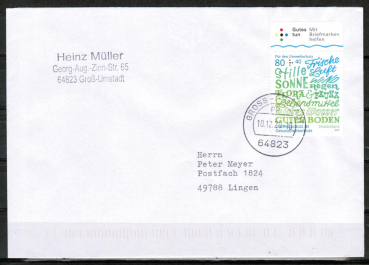 Heinz Müller
Georg-Aug.-Zinn-Str. 65
64823 Groß-Umstadt
Gutes tun
Mit Briefmarken helfen
Für den Umweltschutz
80 + 40
Frische
Stille Luft
SONNE Regen
FLORA &
Lebensmittel
GUTER BODEN
GROSS-
18.12.
64823
Herrn
Peter Meyer
Postfach 1824
49788 Lingen